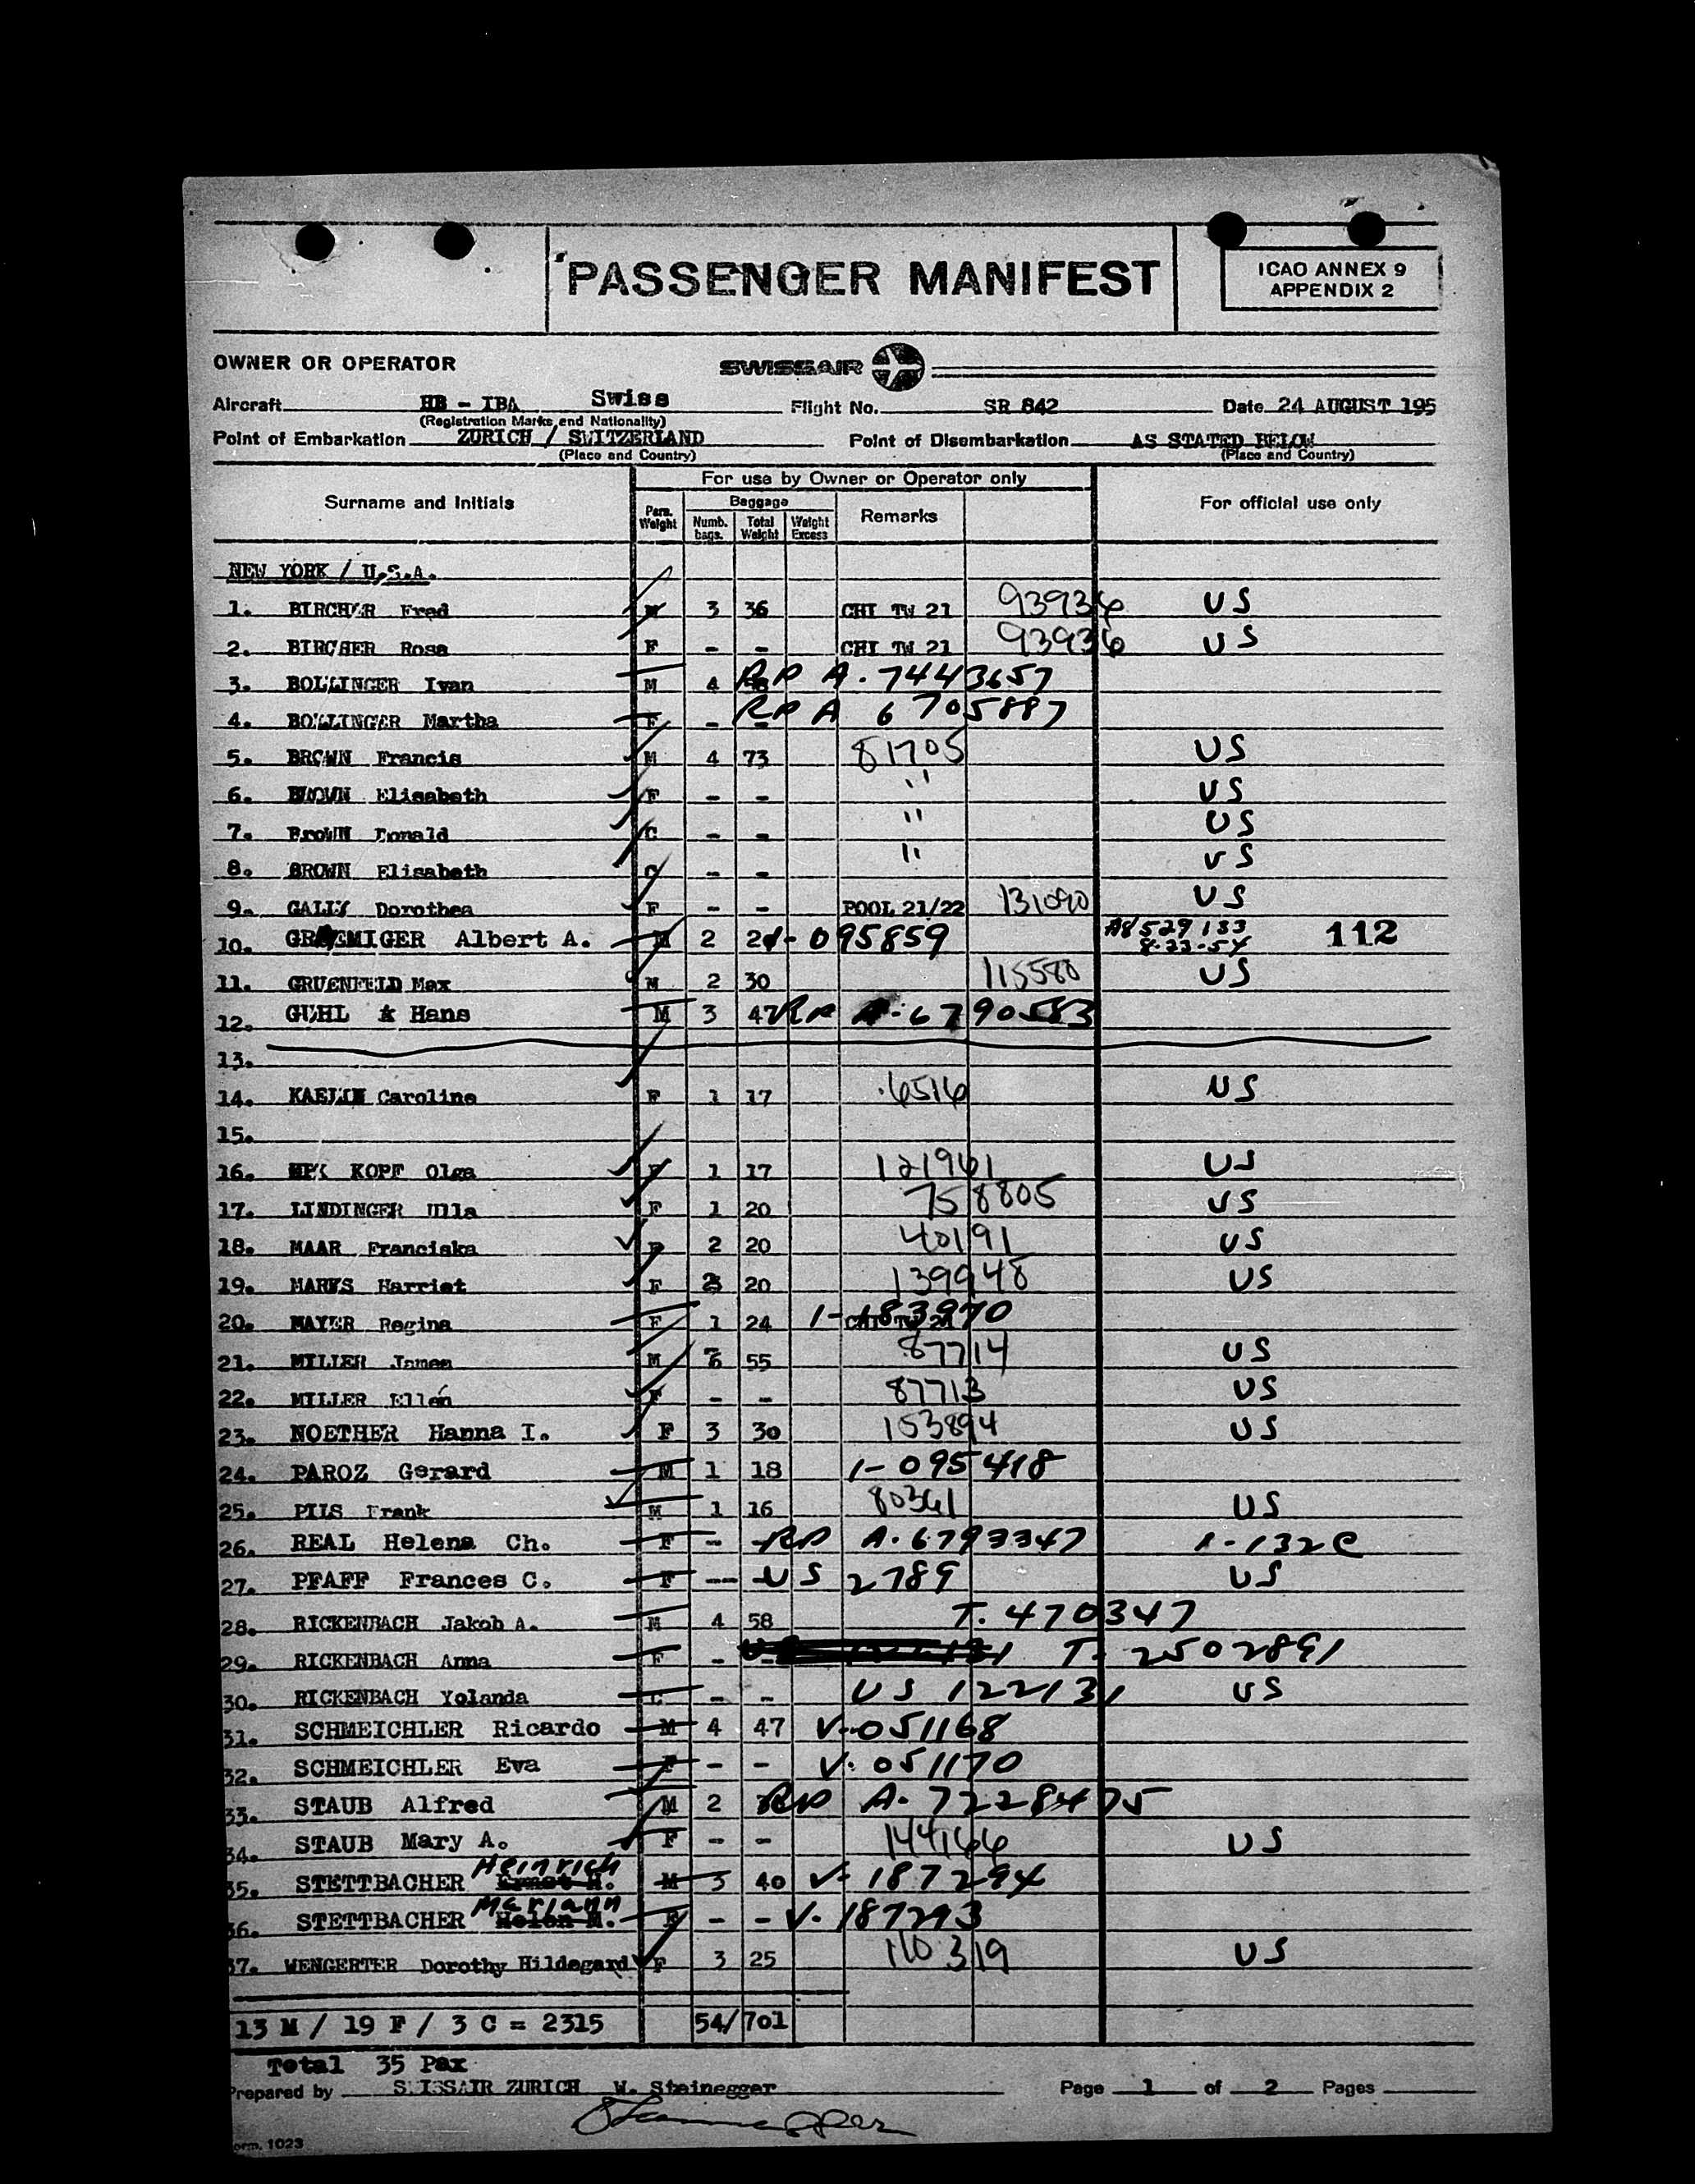 PASSENGER MANIFEST
ICAO ANNEX 9
APPENDIX 2
OWNER OR OPERATOR SWISSAIR
Aircraft HB - IBA Swiss Flight No. SR 842 Date 24 AUGUST 195
(Registration Marks and Nationality)
Point of Embarkation ZURICH / SWITZERLAND Point of Disembarkation AS STATED BELOW
(Place and Country) (Place and Country)
For use by Owner or Operator only
Surname and Initials Pers. Weight Baggage Numb. bags. Total Weight Weight Excess Remarks For official use only
NEW YORK / U.S.A.
1. BIRCHER Fred M 3 36 CHI TW 21 93936 US
2. BIRCHER Rosa F - - CHI TW 21 93936 US
3. BOLLINGER Ivan M 4 RP A. 7443657
4. BOLLINGER Martha F - - RP A 6705887
5. BROWN Francis M 4 73 81705 US
6. BROWN Elisabeth F - - " US
7. BroWN Donald C - - " US
8. BROWN Elisabeth C - - " US
9. GALLY Dorothea F - - POOL 21/22 131090 US
10. GRAEMIGER Albert A. M 2 2 I- 095859 A8529133 8-23-54 112
11. GRUENFELD Max M 2 30 115580 US
12. GUHL Hans M 3 47 RP A-6790583
13.
14. KAELIN Caroline F 1 17 6516 US
15.
16. KOPF Olga F 1 17 121961 US
17. LINDINGER Ulla F 1 20 758805 US
18. MAAR Franciska F 2 20 40191 US
19. MARKS Harriet F 3 20 139948 US
20. MAYER Regina F 1 24 I-183970 CHI TW 21
21. MILLER James M 6 55 87714 US
22. MILLER Ellen F - - 87713 US
23. NOETHER Hanna I. F 3 30 153894 US
24. PAROZ Gerard M 1 18 1-095418
25. PILS Frank M 1 16 80361 US
26. REAL Helena Ch. F - - RP A.6793347 1-132C
27. PFAFF Frances C. F -- - US 2789 US
28. RICKENBACH Jakob A. M 4 58 T. 470347
29. RICKENBACH Anna F - - T. 2502891
30. RICKENBACH Yolanda C - - US 122131 US
31. SCHMEICHLER Ricardo M 4 47 V-051168
32. SCHMEICHLER Eva F - - V. 051170
33. STAUB Alfred M 2 RP A. 7228475
34. STAUB Mary A. F - - 144166 US
35. STETTBACHER Heinrich Ernst H. M 3 40 V- 187294
36. STETTBACHER Mariann Helen M. F - - V. 187293
37. WENGERTER Dorothy Hildegard F 3 25 110319 US
13 M / 19 F / 3 C = 2315 54/701
Total 35 Pax
Prepared by SWISSAIR ZURICH W. Steinegger Page 1 of 2 Pages
orm. 1023